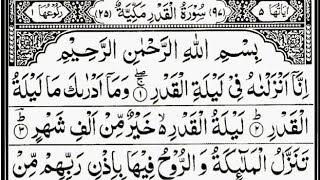 اٰیَاتُهَا ٥ (٩٧) سُوْرَةُ الْقَدْرِ مَكِّيَّةٌ (٢٥) رُكُوْعُهَا ١
بِسْمِ اللهِ الرَّحْمٰنِ الرَّحِيْمِ
اِنَّاۤ اَنْزَلْنٰهُ فِيْ لَيْلَةِ الْقَدْرِ ۚ ١ وَمَاۤ اَدْرٰىكَ مَا لَيْلَةُ
الْقَدْرِ ؕ ٢ لَيْلَةُ الْقَدْرِ ۙ خَيْرٌ مِّنْ اَلْفِ شَهْرٍ ؕ ٣
تَنَزَّلُ الْمَلٰٓئِكَةُ وَ الرُّوْحُ فِيْهَا بِاِذْنِ رَبِّهِمْ مِّنْ